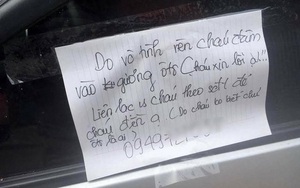 Do vô tình nên cháu đâm
vào gương ôtô Cháu xin lỗi ạ!!!
Liên lạc cháu theo sđt để
cháu đền ạ (Do cháu ko biết chủ
ôtô là ai)